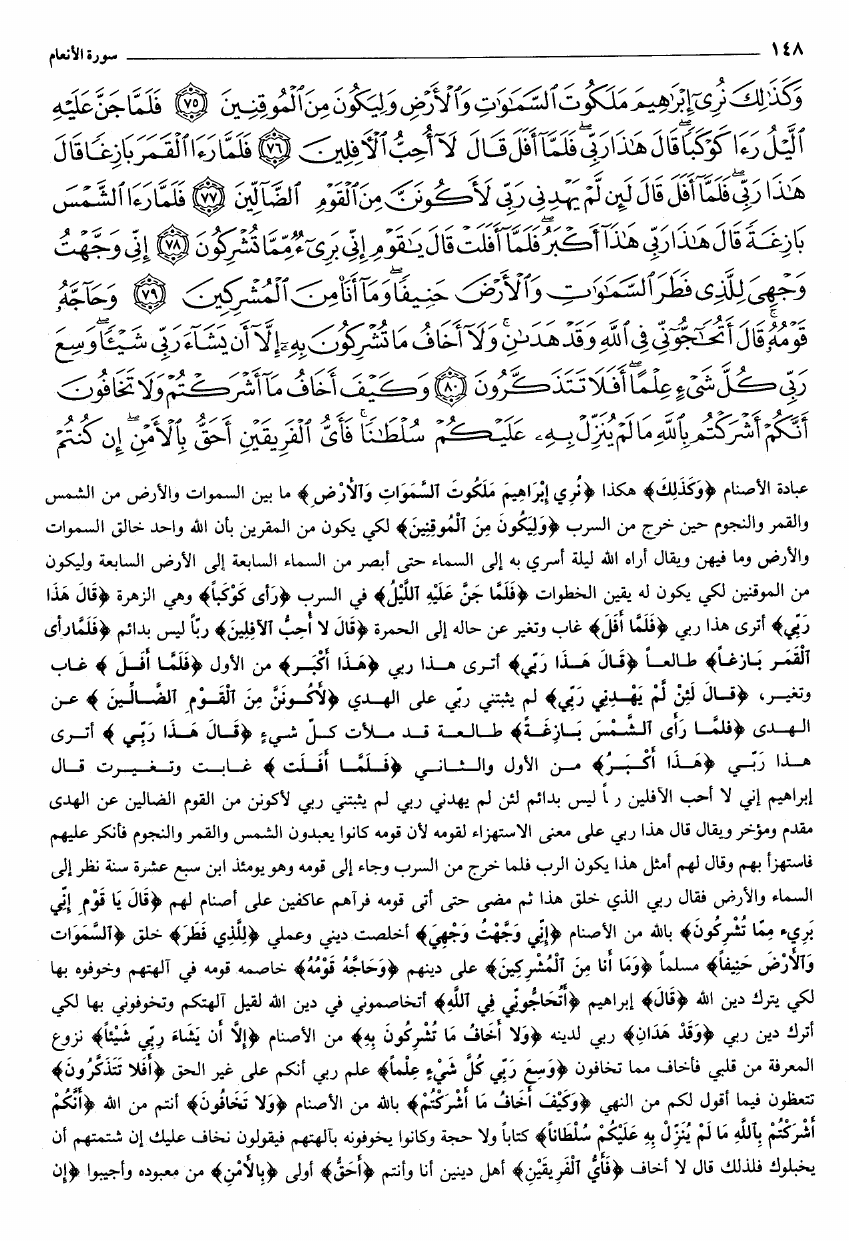 ١٤٨ سورة الأنعام
وَكَذَٰلِكَ نُرِىٓ إِبْرَٰهِيمَ مَلَكُوتَ ٱلسَّمَٰوَٰتِ وَٱلْأَرْضِ وَلِيَكُونَ مِنَ ٱلْمُوقِنِينَ ٧٥ فَلَمَّا جَنَّ عَلَيْهِ
ٱلَّيْلُ رَءَا كَوْكَبًاۖ قَالَ هَٰذَا رَبِّىۖ فَلَمَّآ أَفَلَ قَالَ لَآ أُحِبُّ ٱلْءَافِلِينَ ٧٦ فَلَمَّا رَءَا ٱلْقَمَرَ بَازِغًا قَالَ
هَٰذَا رَبِّىۖ فَلَمَّآ أَفَلَ قَالَ لَئِن لَّمْ يَهْدِنِى رَبِّى لَأَكُونَنَّ مِنَ ٱلْقَوْمِ ٱلضَّآلِّينَ ٧٧ فَلَمَّا رَءَا ٱلشَّمْسَ
بَازِغَةً قَالَ هَٰذَا رَبِّى هَٰذَآ أَكْبَرُۖ فَلَمَّآ أَفَلَتْ قَالَ يَٰقَوْمِ إِنِّى بَرِىٓءٌ مِّمَّا تُشْرِكُونَ ٧٨ إِنِّى وَجَّهْتُ
وَجْهِىَ لِلَّذِى فَطَرَ ٱلسَّمَٰوَٰتِ وَٱلْأَرْضَ حَنِيفًاۖ وَمَآ أَنَا۠ مِنَ ٱلْمُشْرِكِينَ ٧٩ وَحَآجَّهُۥ
قَوْمُهُۥۚ قَالَ أَتُحَٰٓجُّوٓنِّى فِى ٱللَّهِ وَقَدْ هَدَىٰنِۚ وَلَآ أَخَافُ مَا تُشْرِكُونَ بِهِۦٓ إِلَّآ أَن يَشَآءَ رَبِّى شَيْـًٔاۗ وَسِعَ
رَبِّى كُلَّ شَىْءٍ عِلْمًاۗ أَفَلَا تَتَذَكَّرُونَ ٨٠ وَكَيْفَ أَخَافُ مَآ أَشْرَكْتُمْ وَلَا تَخَافُونَ
أَنَّكُمْ أَشْرَكْتُم بِٱللَّهِ مَا لَمْ يُنَزِّلْ بِهِۦ عَلَيْكُمْ سُلْطَٰنًاۚ فَأَىُّ ٱلْفَرِيقَيْنِ أَحَقُّ بِٱلْأَمْنِۖ إِن كُنتُمْ
عبادة الأصنام ﴿وَكَذَلِكَ﴾ هكذا ﴿نُرِي إِبْرَاهِيمَ مَلَكُوتَ ٱلسَّمَوَاتِ وَٱلْأَرْضِ﴾ ما بين السموات والأرض من الشمس
والقمر والنجوم حين خرج من السرب ﴿وَلِيَكُونَ مِنَ ٱلْمُوقِنِينَ﴾ لكي يكون من المقرين بأن الله واحد خالق السموات
والأرض وما فيهن ويقال أراه الله ليلة أسري به إلى السماء حتى أبصر من السماء السابعة إلى الأرض السابعة وليكون
من الموقنين لكي يكون له يقين الخطوات ﴿فَلَمَّا جَنَّ عَلَيْهِ ٱللَّيْلُ﴾ في السرب ﴿رَأى كَوْكَباً﴾ وهي الزهرة ﴿قَالَ هَذَا
رَبِّي﴾ أترى هذا ربي ﴿فَلَمَّا أَفَلَ﴾ غاب وتغير عن حاله إلى الحمرة ﴿قَالَ لا أُحِبُّ ٱلآفِلِينَ﴾ رباً ليس بدائم ﴿فَلَمَّا رأى
ٱلْقَمَرَ بَازِغاً﴾ طالعاً ﴿قَالَ هَذَا رَبِّي﴾ أترى هذا ربي ﴿هَذَا أَكْبَر﴾ من الأول ﴿فَلَمَّا أَفَلَ﴾ غاب
وتغير، ﴿قَالَ لَئِنْ لَمْ يَهْدِنِي رَبِّي﴾ لم يثبتني ربّي على الهدي ﴿لأَكُونَنَّ مِنَ ٱلْقَوْمِ ٱلضَّالِّينَ﴾ عن
الهدى ﴿فَلَمَّا رَأَى ٱلشَّمْسَ بَازِغَةً﴾ طالعة قد ملأت كلّ شيءٍ ﴿قَالَ هَذَا رَبِّي﴾ أترى
هذا رَبّي ﴿هَذَا أَكْبَرُ﴾ من الأول والثاني ﴿فَلَمَّا أَفَلَت﴾ غابت وتغيرت قال
إبراهيم إني لا أحب الآفلين ر اً ليس بدائم لئن لم يهدني ربي لم يثبتني ربي لأكونن من القوم الضالين عن الهدى
مقدم ومؤخر ويقال قال هذا ربي على معنى الاستهزاء لقومه لأن قومه كانوا يعبدون الشمس والقمر والنجوم فأنكر عليهم
فاستهزأ بهم وقال لهم أمثل هذا يكون الرب فلما خرج من السرب وجاء إلى قومه وهو يومئذ ابن سبع عشرة سنة نظر إلى
السماء والأرض فقال ربي الذي خلق هذا ثم مضى حتى أتى قومه فرآهم عاكفين على أصنام لهم ﴿قَالَ يَا قَوْمِ إِنِّي
بَرِيء مِمَّا تُشْرِكُونَ﴾ بالله من الأصنام ﴿إِنِّي وَجَّهْتُ وَجْهِيَ﴾ أخلصت ديني وعملي ﴿لِلَّذِي فَطَرَ﴾ خلق ﴿ٱلسَّمَوَات
وَٱلْأَرْضَ حَنِيفاً﴾ مسلماً ﴿وَمَا أَنا مِنَ ٱلْمُشْرِكِينَ﴾ على دينهم ﴿وَحَاجَّهُ قَوْمُهُ﴾ خاصمه قومه في آلهتهم وخوفوه بها
لكي يترك دين الله ﴿قَالَ﴾ إبراهيم ﴿أَتُحَاجُّونِّي فِي ٱللَّهِ﴾ أتخاصموني في دين الله لقيل آلهتكم وتخوفوني بها لكي
أترك دين ربي ﴿وَقَدْ هَدَانِ﴾ ربي لدينه ﴿وَلا أَخَافُ مَا تُشْرِكُونَ بِهِ﴾ من الأصنام ﴿إِلَّا أَن يَشَاءَ رَبِّي شَيْئاً﴾ نزوع
المعرفة من قلبي فأخاف مما تخافون ﴿وَسِعَ رَبِّي كُلَّ شَيْءٍ عِلْماً﴾ علم ربي أنكم على غير الحق ﴿أَفَلا تَتَذَكَّرُونَ﴾
تتعظون فيما أقول لكم من النهي ﴿وَكَيْفَ أَخَافُ مَا أَشْرَكْتُمْ﴾ بالله من الأصنام ﴿وَلا تَخَافُونَ﴾ أنتم من الله ﴿أَنَّكُمْ
أَشْرَكْتُمْ بِٱللَّهِ مَا لَمْ يُنَزِّلْ بِهِ عَلَيْكُمْ سُلْطَاناً﴾ كتاباً ولا حجة وكانوا يخوفونه بآلهتهم فيقولون نخاف عليك إن شتمتهم أن
يخبلوك فلذلك قال لا أخاف ﴿فَأَيُّ ٱلْفَرِيقَيْنِ﴾ أهل دينين أنا وأنتم ﴿أَحَقُّ﴾ أولى ﴿بِالأَمْنِ﴾ من معبوده وأجيبوا ﴿إِن